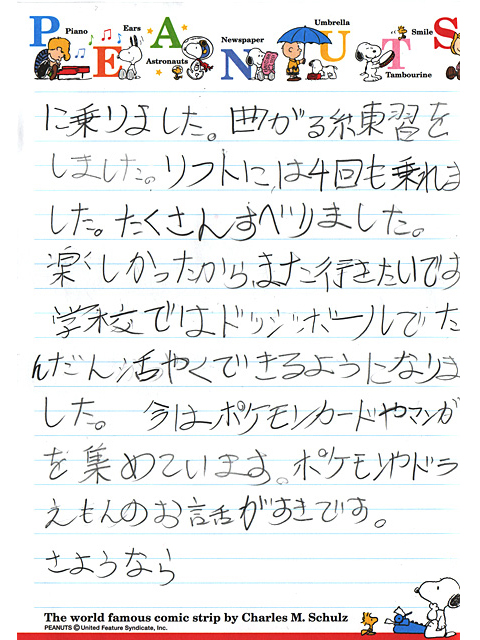 P Piano E Ears A Astronauts N Newspaper U Umbrella T Tambourine S Smile
に乗りました。曲がる糸東習を
しました。リフトには4回も乗れま
した。たくさんすべりました。
楽しかったから、また行きたいです
学校ではドッジボールでた
んだん活やくできるようになりま
した。 今はポケモンカードやマンガ
を集めています。ポケモンやドラ
えもんのお話がすきです。
さようなら
The world famous comic strip by Charles M. Schulz
PEANUTS © United Feature Syndicate, Inc.